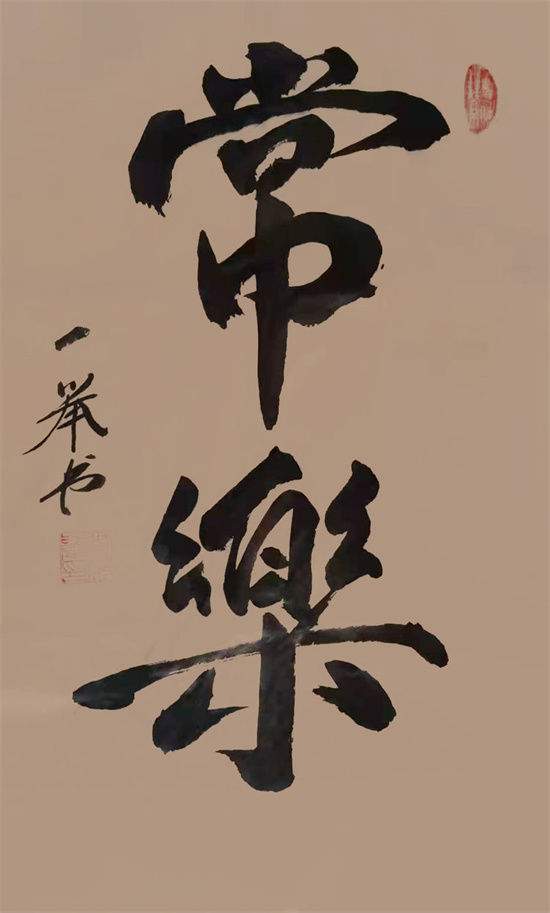 常樂
一举书